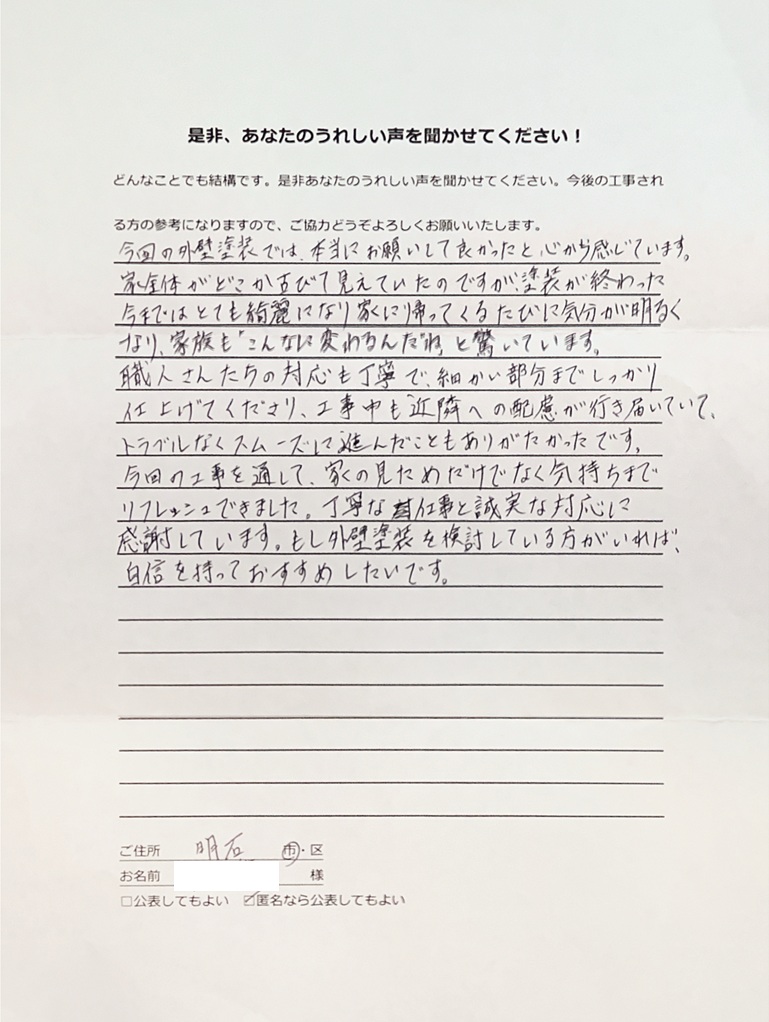 是非、あなたのうれしい声を聞かせてください！
どんなことでも結構です。是非あなたのうれしい声を聞かせてください。今後の工事され
る方の参考になりますので、ご協力どうぞよろしくお願いいたします。
今回の外壁塗装では、本当にお願いして良かったと心から感じています。
家全体がどこか古びて見えていたのですが、塗装が終わった
今ではとても綺麗になり家に帰ってくるたびに気分が明るく
なり、家族も"こんなに変わるんだね"と驚いています。
職人さんたちの対応も丁寧で、細かい部分までしっかり
仕上げてくださり、工事中も近隣への配慮が行き届いていて、
トラブルなくスムーズに進んだこともありがたかったです。
今回の工事を通して、家の見ためだけでなく気持ちまで
リフレッシュできました。丁寧な仕事と誠実な対応に
感謝しています。もし外壁塗装を検討している方がいれば、
自信を持っておすすめしたいです。
ご住所 明石 市・区
お名前 様
□公表してもよい ☑匿名なら公表してもよい